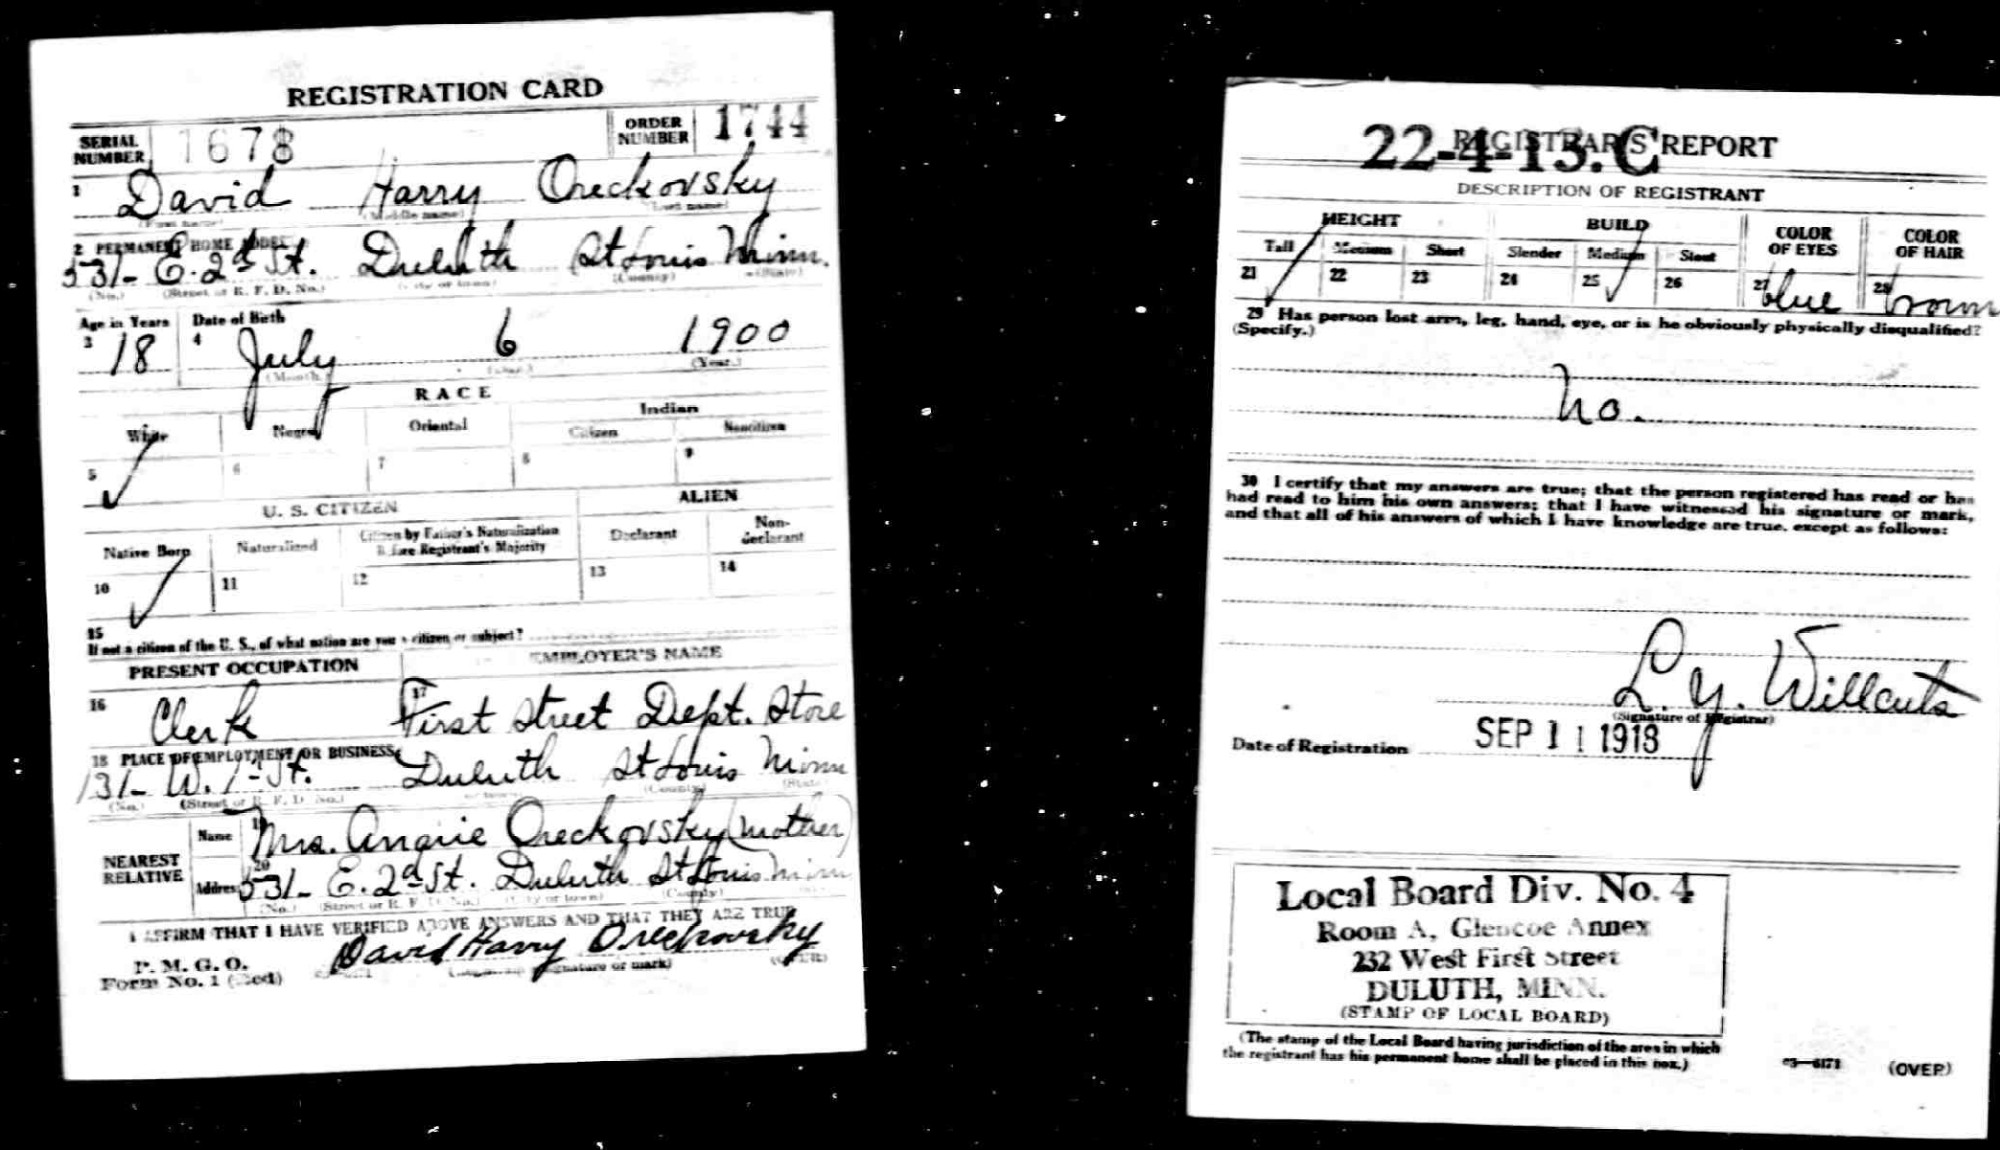 REGISTRATION CARD
SERIAL NUMBER 1678 ORDER NUMBER 1744
1 David Harry Oreckovsky
(First name) (Middle name) (Last name)
2 PERMANENT HOME ADDRESS
531- E. 2d St. Duluth St Louis Minn.
(No.) (Street or R. F. D. No.) (City or town) (County) (State)
Age in Years Date of Birth
3 18 4 July 6 1900
(Month.) (Day.) (Year.)
RACE
White Negro Oriental Indian
Citizen Noncitizen
5 ✓ 6 7 8 9
U. S. CITIZEN ALIEN
Native Born Naturalized Citizen by Father's Naturalization Before Registrant's Majority Declarant Non-declarant
10 ✓ 11 12 13 14
15
If not a citizen of the U. S., of what nation are you a citizen or subject?
PRESENT OCCUPATION EMPLOYER'S NAME
16 Clerk 17 First Street Dept. Store
18 PLACE OF EMPLOYMENT OR BUSINESS
131- W. 1st St. Duluth St Louis Minn
(No.) (Street or R. F. D. No.) (County) (State)
NEAREST RELATIVE
Name 19 Mrs. Angie Oreckovsky (mother)
Address 20 531- E. 2d St. Duluth St Louis Minn
(No.) (Street or R. F. D. No.) (City or town) (County)
I AFFIRM THAT I HAVE VERIFIED ABOVE ANSWERS AND THAT THEY ARE TRUE
P. M. G. O.
Form No. 1 (Red) David Harry Oreckovsky
(Registrant's signature or mark) (OVER)
REGISTRAR'S REPORT
22-4-13. C
DESCRIPTION OF REGISTRANT
HEIGHT BUILD COLOR OF EYES COLOR OF HAIR
Tall Medium Short Slender Medium Stout
21 ✓ 22 23 24 25 ✓ 26 27 blue 28 brown
29 Has person lost arm, leg, hand, eye, or is he obviously physically disqualified?
(Specify.)
no.
30 I certify that my answers are true; that the person registered has read or has
had read to him his own answers; that I have witnessed his signature or mark,
and that all of his answers of which I have knowledge are true, except as follows:
L. Y. Willcuts
(Signature of Registrar)
Date of Registration SEP 11 1918
Local Board Div. No. 4
Room A, Glencoe Annex
232 West First Street
DULUTH, MINN.
(STAMP OF LOCAL BOARD)
(The stamp of the Local Board having jurisdiction of the area in which
the registrant has his permanent home shall be placed in this box.)
03—6171 (OVER)